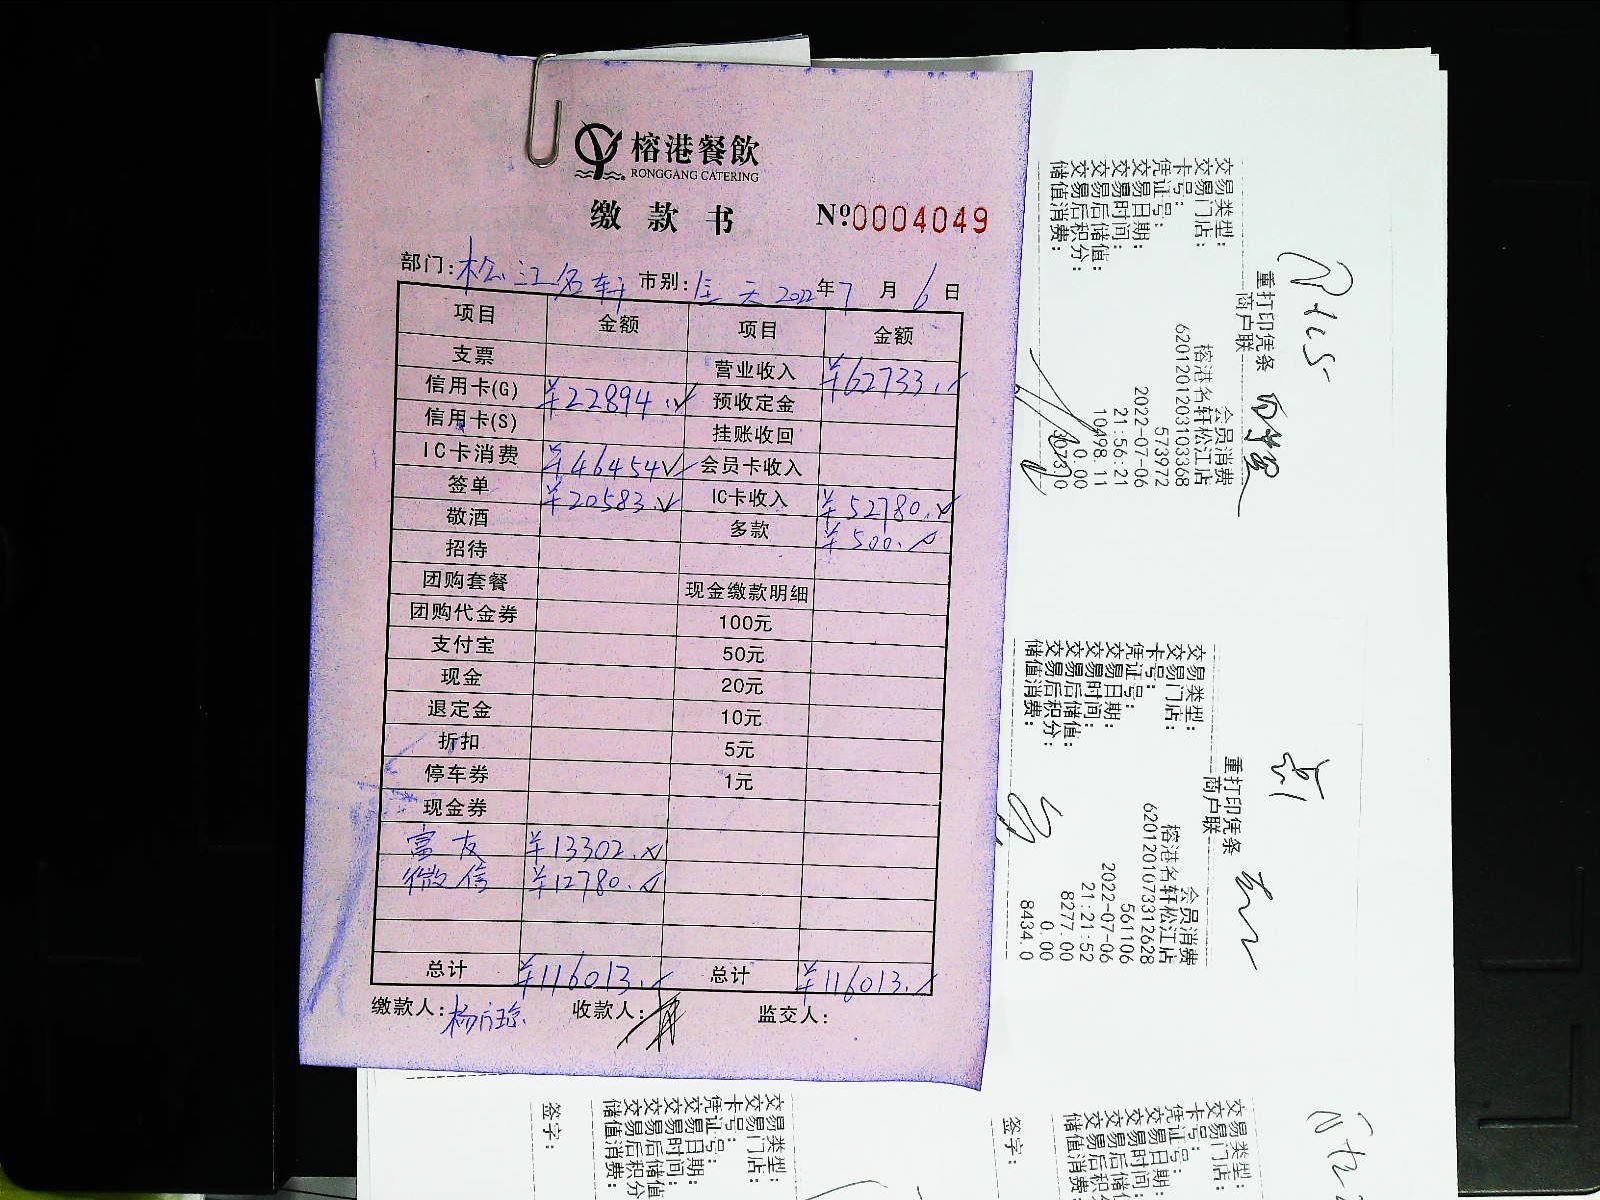 榕港餐飲
RONGGANG CATERING
缴款书 №0004049
部门:松江名轩 市别:全天 2022年7月6日
项目 金额 项目 金额
支票 营业收入 ¥62733.
信用卡(G) ¥22894. 预收定金
信用卡(S) 挂账收回
IC卡消费 ¥46454 会员卡收入
签单 ¥20583. IC卡收入 ¥52780.
敬酒 多款 ¥500.
招待
团购套餐 现金缴款明细
团购代金券 100元
支付宝 50元
现金 20元
退定金 10元
折扣 5元
停车券 1元
现金券
富友 ¥13302.
微信 ¥12780.
总计 ¥116013. 总计 ¥116013.
缴款人: 收款人: 监交人:
重打印凭条
商户联
交易类型: 会员消费
交易门店: 榕港名轩松江店
卡号: 6201201203103368
凭证号: 573972
交易日期: 2022-07-06
交易时间: 21:56:21
交易后储值: 10498.11
交易后积分: 0.00
储值消费:
重打印凭条
商户联
交易类型: 会员消费
交易门店: 榕港名轩松江店
卡号: 6201201073312628
凭证号: 561106
交易日期: 2022-07-06
交易时间: 21:21:52
交易后储值: 8277.00
交易后积分: 0.00
储值消费: 8434.0
交易类型:
交易门店:
卡号:
凭证号:
交易日期:
交易时间:
交易后储值
交易后积分
储值消费:
签字:
交易类型:
交易门店:
卡号:
凭证号:
交易日期:
交易时间:
交易后储值
交易后积分
储值消费:
签字: